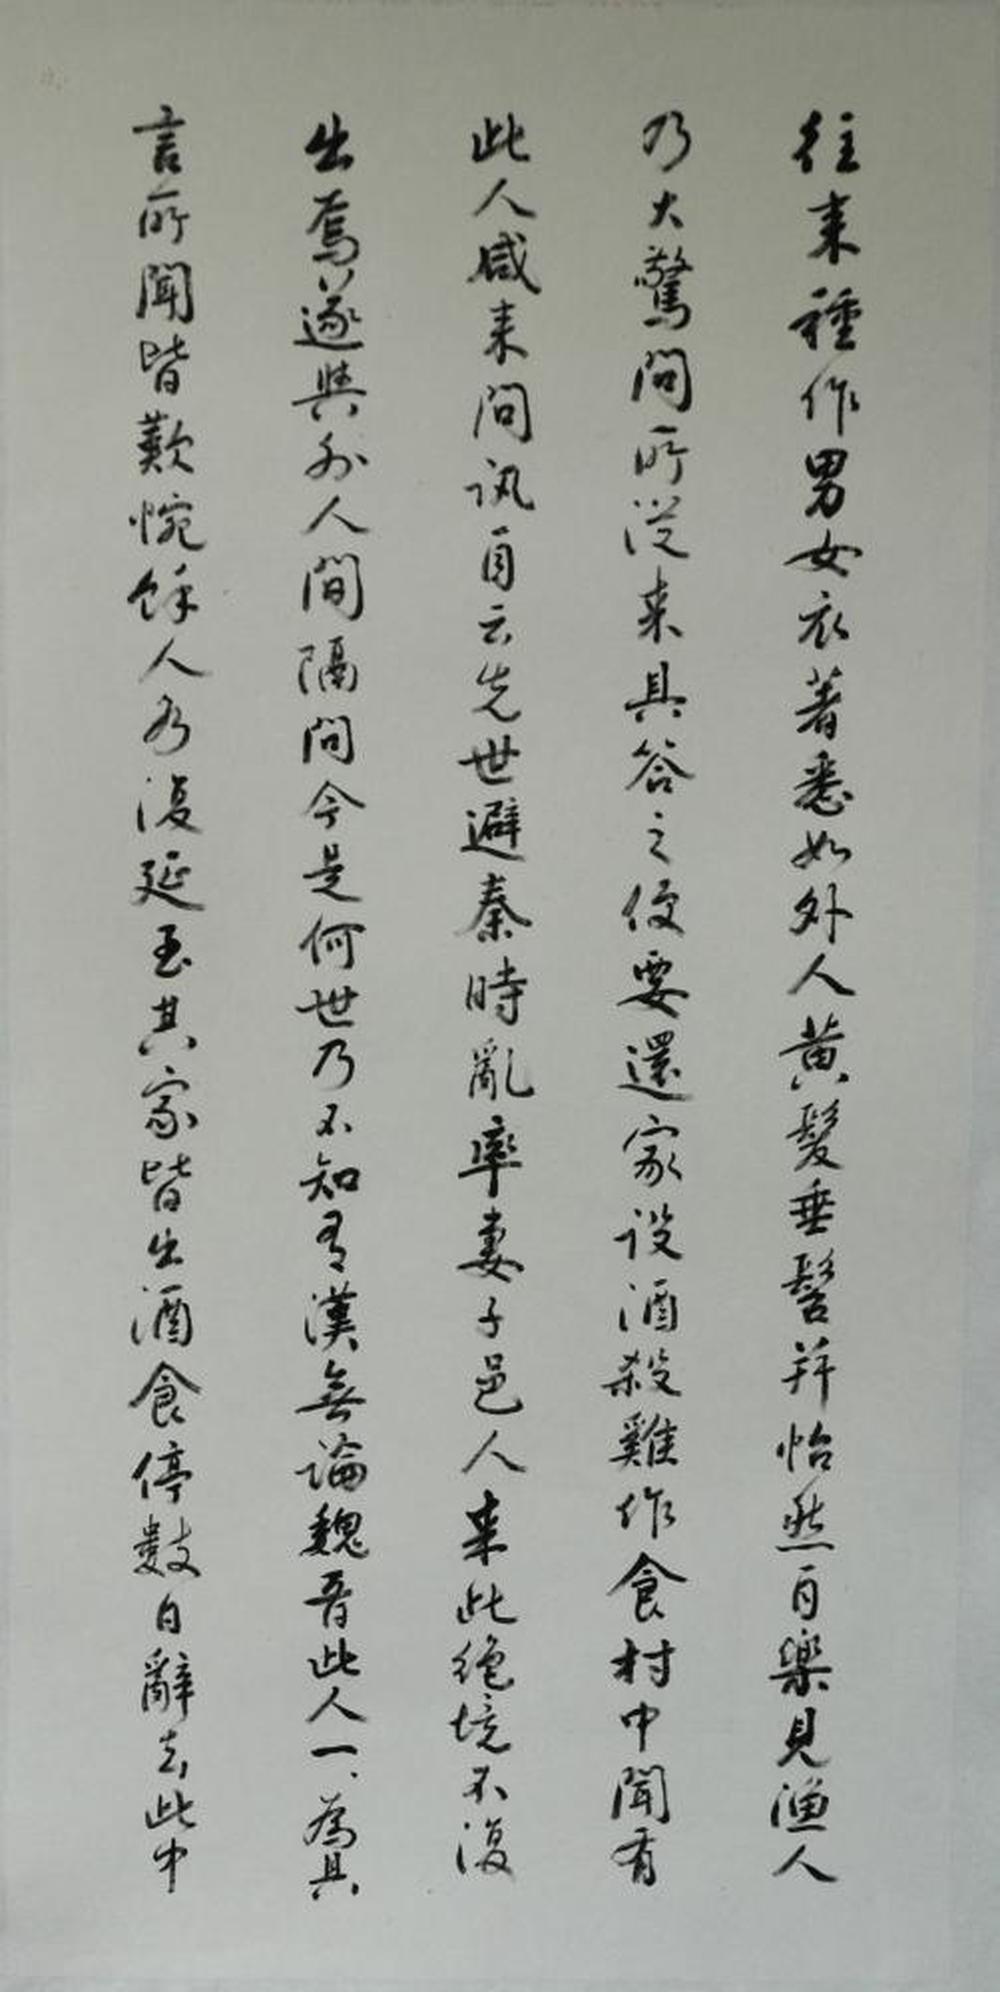 往来種作男女衣著悉如外人黄髮垂髫并怡然自樂見漁人
乃大驚問所從来具答之便要還家設酒殺雞作食村中聞有
此人咸来問訊自云先世避秦時亂率妻子邑人来此絶境不復
出焉遂與外人間隔問今是何世乃不知有漢無論魏晉此人一一為具
言所聞皆歎惋餘人各復延至其家皆出酒食停數日辭去此中